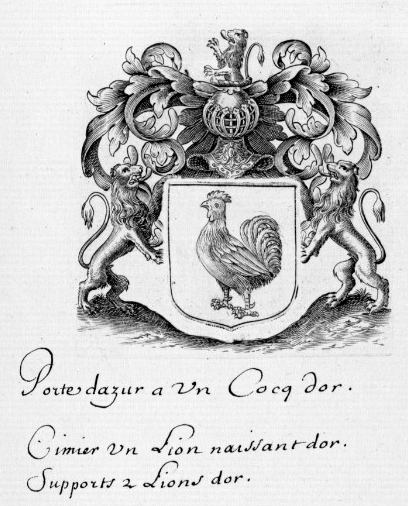 Porte dazur a Vn Cocq dor.
Cimier Vn Lion naissant dor.
Supports 2 Lions dor.